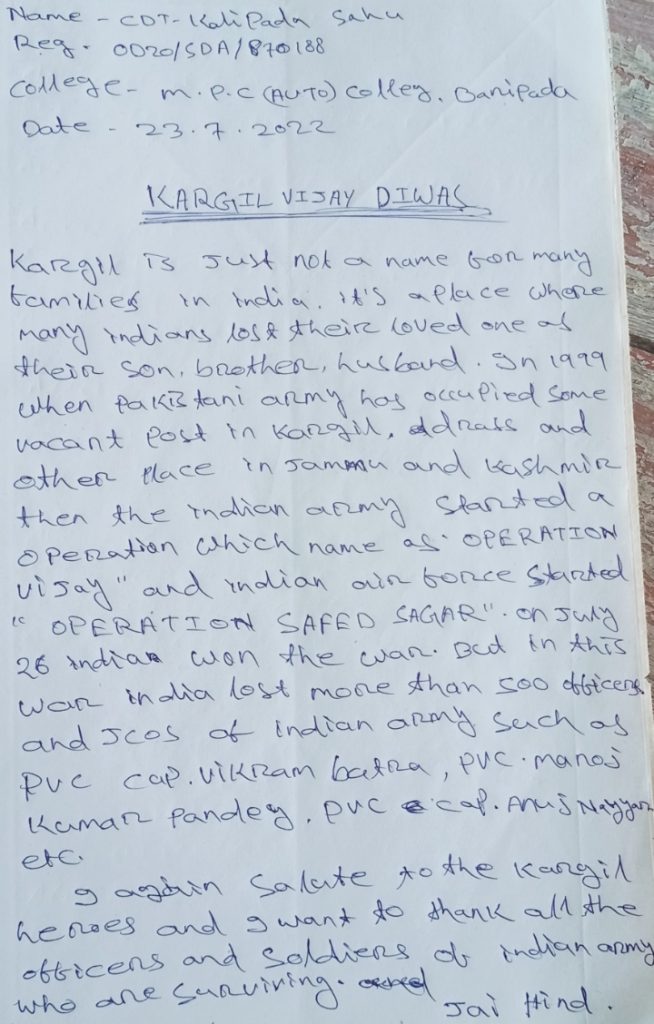 Name - CDT - Kalipada Sahu
Reg. OD20/SDA/870188
College - M.P.C (AUTO) Colleg, Baripada
Date - 23.7.2022
KARGIL VIJAY DIWAS
Kargil is just not a name for many
families in india. it's a place where
many indians lost their loved one as
their son, brother, husband. In 1999
when pakistani army has occupied some
vacant post in Kargil, drass and
other place in Jammu and Kashmir
then the indian army started a
operation which name as "OPERATION
Vijay" and indian air force started
"OPERATION SAFED SAGAR". on July
26 india won the war. But in this
war india lost more than 500 officers
and JCOs of indian army such as
PVC cap. vikram batra, PVC. manoj
Kumar Pandey, PVC cap. Anuj Nayyar
etc.
I again Salute to the Kargil
heroes and I want to thank all the
officers and Soldiers of indian army
who are surviving.
Jai Hind.